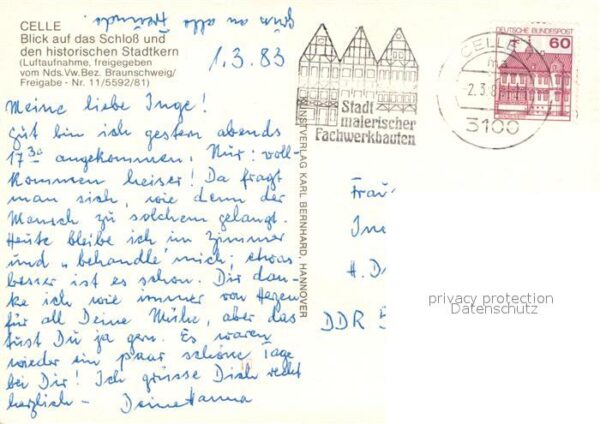 CELLE
Blick auf das Schloß und
den historischen Stadtkern
(Luftaufnahme, freigegeben
vom Nds.Vw.Bez. Braunschweig/
Freigabe - Nr. 11/5592/81)
Grüß an alle
Freunde
1.3.83
Meine liebe Inge!
Gut bin ich gestern abends
17³⁰ angekommen. Nur: voll-
kommen heiser! Da fragt
man sich, wie denn der
Mensch zu solchem gelangt.
Heute bleibe ich im Zimmer
und „behandle" mich; etwas
besser ist es schon. Dir dan-
ke ich wie immer von Herzen
für all Deine Mühe, aber das
tust Du ja gern. Es waren
wieder ein paar schöne Tage
bei Dir! Ich grüsse Dich recht
herzlich - Deine Hanna
KUNSTVERLAG KARL BERNHARD, HANNOVER
Stadt
malerischer
Fachwerkbauten
CELLE
-2.3.8
3100
DEUTSCHE BUNDESPOST
60
Frau
In
H. D
DDR 5
privacy protection
Datenschutz